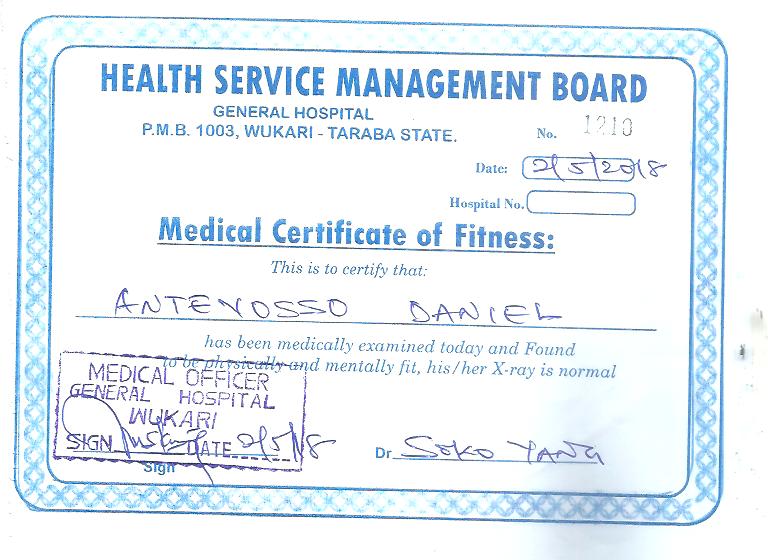 HEALTH SERVICE MANAGEMENT BOARD
GENERAL HOSPITAL
P.M.B. 1003, WUKARI - TARABA STATE.
No. 1210
Date: 2/5/2018
Hospital No.
Medical Certificate of Fitness:
This is to certify that:
ANTEYOSSO DANIEL
has been medically examined today and Found
to be physically and mentally fit, his/her X-ray is normal
MEDICAL OFFICER
GENERAL HOSPITAL
WUKARI
SIGN DATE 2/5/18
Sign
Dr. SOKO YANG